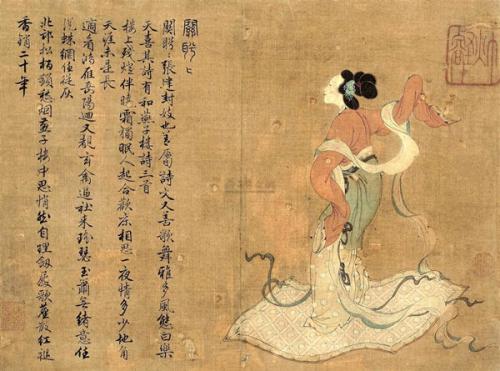 關盼〻
關盼〻張建封妓也善屬詩文又善歌舞雅多風態白樂
天喜其詩有和燕子樓詩三首
樓上殘燈伴曉霜獨眠人起合歡床相思一夜情多少地角
天涯未是長
適看鴻雁岳陽迴又覩玄禽逼社來瑤瑟玉簫無緒意任
從蛛網任從灰
北邙松柏鎖愁煙燕子樓中思悄然自理劍履歌塵散紅袖
香銷二十年